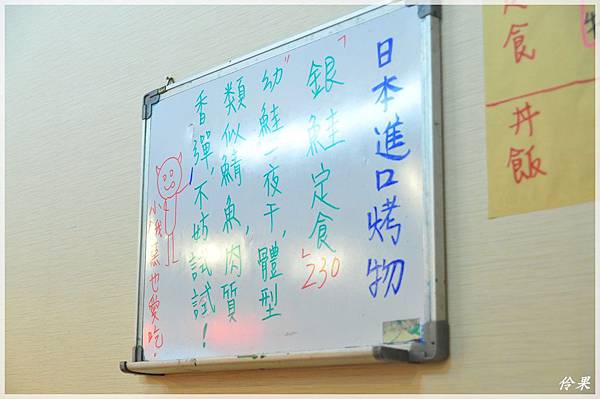 日本進口烤物
「銀鮭定食」230
"幼"鮭一夜干,體型
類似鯖魚,肉質
香彈,不妨試試!
小惡魔也愛吃!
定食
丼飯
伶果